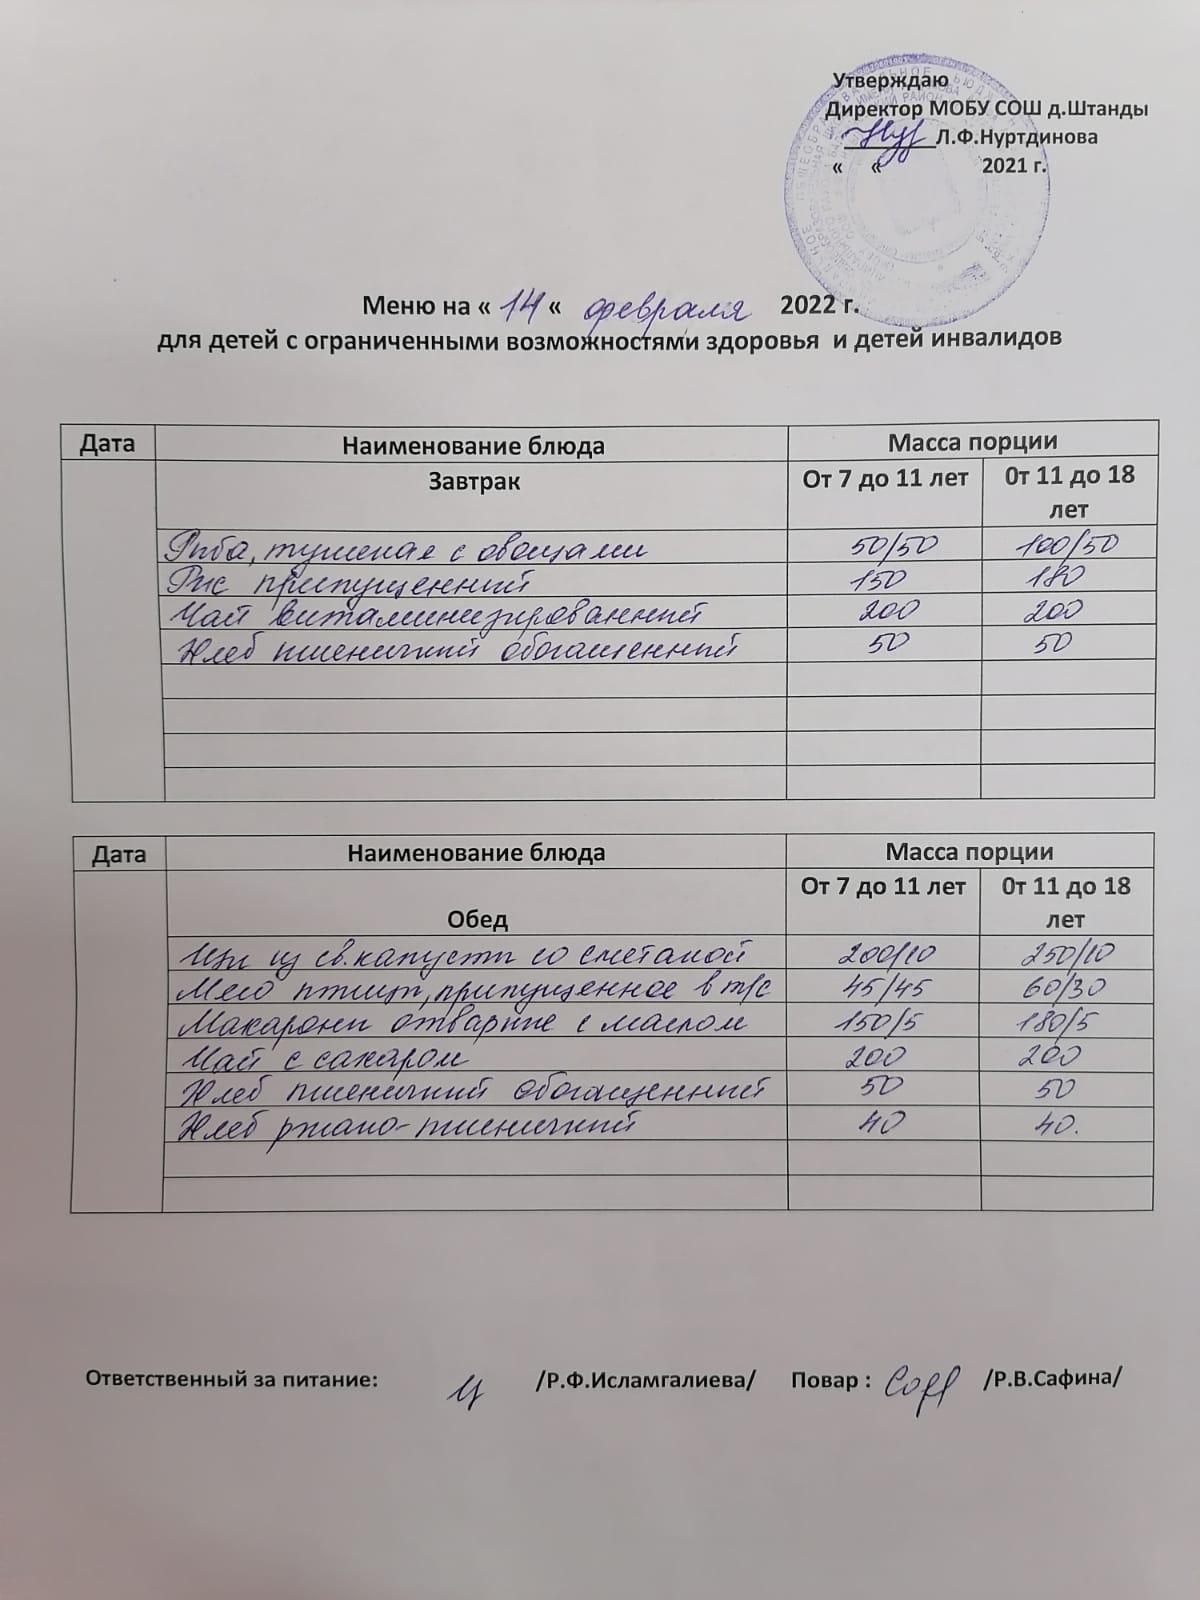 Утверждаю
Директор МОБУ СОШ д.Штанды
Л.Ф.Нуртдинова
« « 2021 г.
Меню на « 14 « февраля 2022 г.
для детей с ограниченными возможностями здоровья и детей инвалидов
Дата Наименование блюда Масса порции
Завтрак От 7 до 11 лет 0т 11 до 18 лет
Рыба, тушеная с овощами 50/50 100/50
Рис припущенный 150 180
Чай витаминизированный 200 200
Хлеб пшеничный обогащенный 50 50
Дата Наименование блюда Масса порции
Обед От 7 до 11 лет 0т 11 до 18 лет
Щи из св.капусты со сметаной 200/10 250/10
Мясо птицы, припущенное в т/с 45/45 60/30
Макароны отварные с маслом 150/5 180/5
Чай с сахаром 200 200
Хлеб пшеничный обогащенный 50 50
Хлеб ржано-пшеничный 40 40.
Ответственный за питание: /Р.Ф.Исламгалиева/ Повар : /Р.В.Сафина/